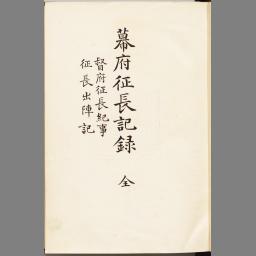 幕府征長記録 全
督府征長紀事
征長出陣記